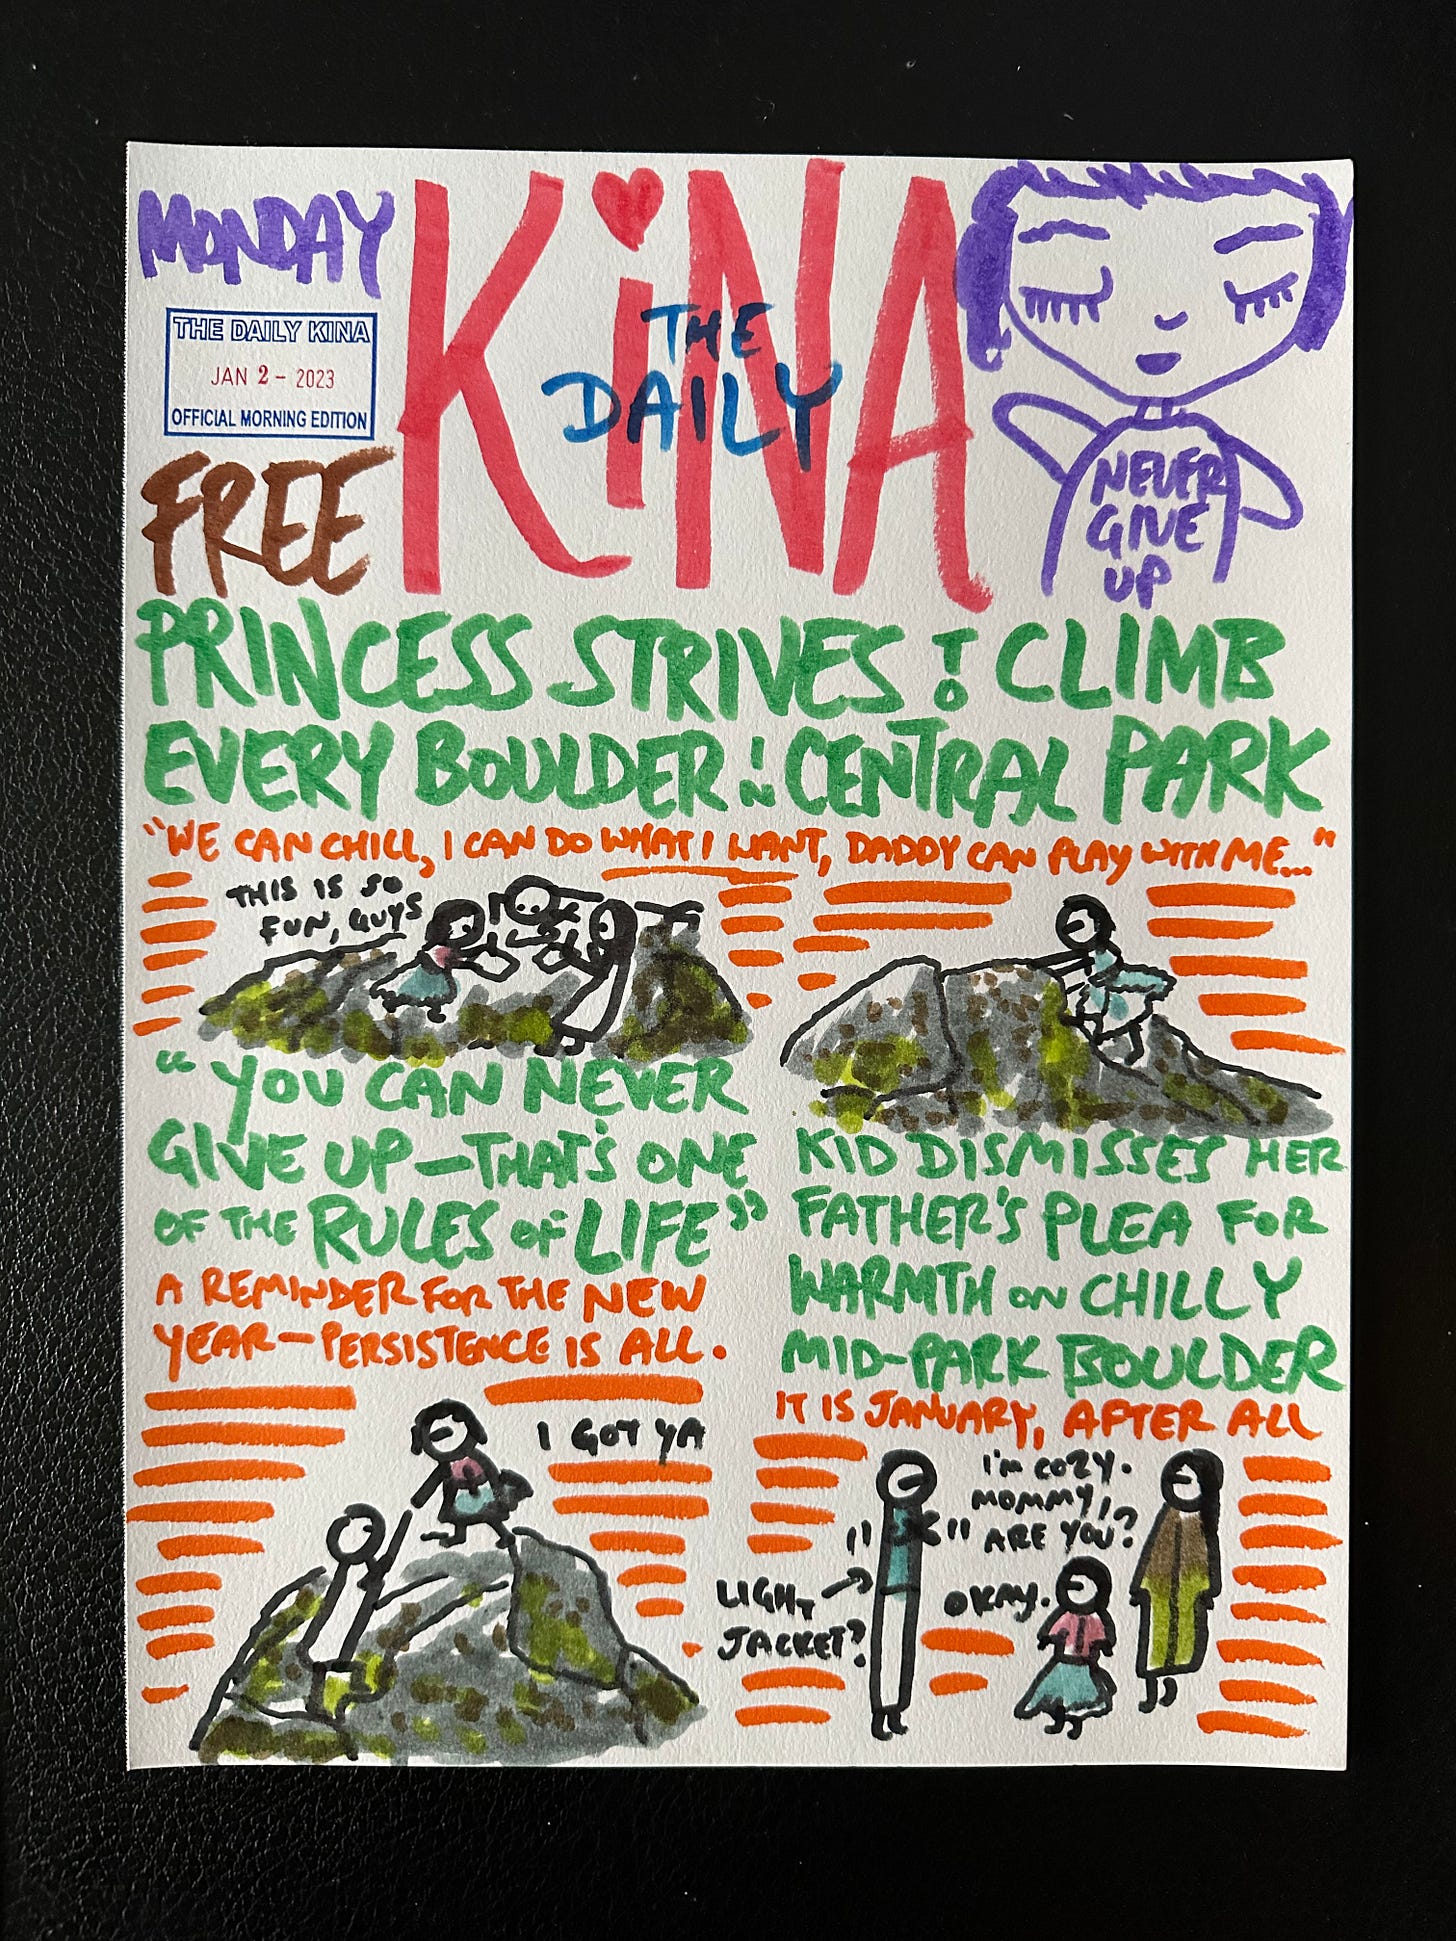 MONDAY
THE DAILY KINA
JAN 2 - 2023
OFFICIAL MORNING EDITION
FREE
KiNA
THE
DAILY
NEVER
GIVE
UP
PRINCESS STRIVES TO CLIMB
EVERY BOULDER IN CENTRAL PARK
"WE CAN CHILL, I CAN DO WHAT I WANT, DADDY CAN PLAY WITH ME..."
THIS IS SO
FUN, GUYS
"YOU CAN NEVER
GIVE UP—THAT'S ONE
OF THE RULES OF LIFE"
A REMINDER FOR THE NEW
YEAR—PERSISTENCE IS ALL.
I GOT YA
KID DISMISSES HER
FATHER'S PLEA FOR
WARMTH ON CHILLY
MID-PARK BOULDER
IT IS JANUARY, AFTER ALL
I'M COZY.
MOMMY,
ARE YOU?
LIGHT
JACKET?
OKAY.